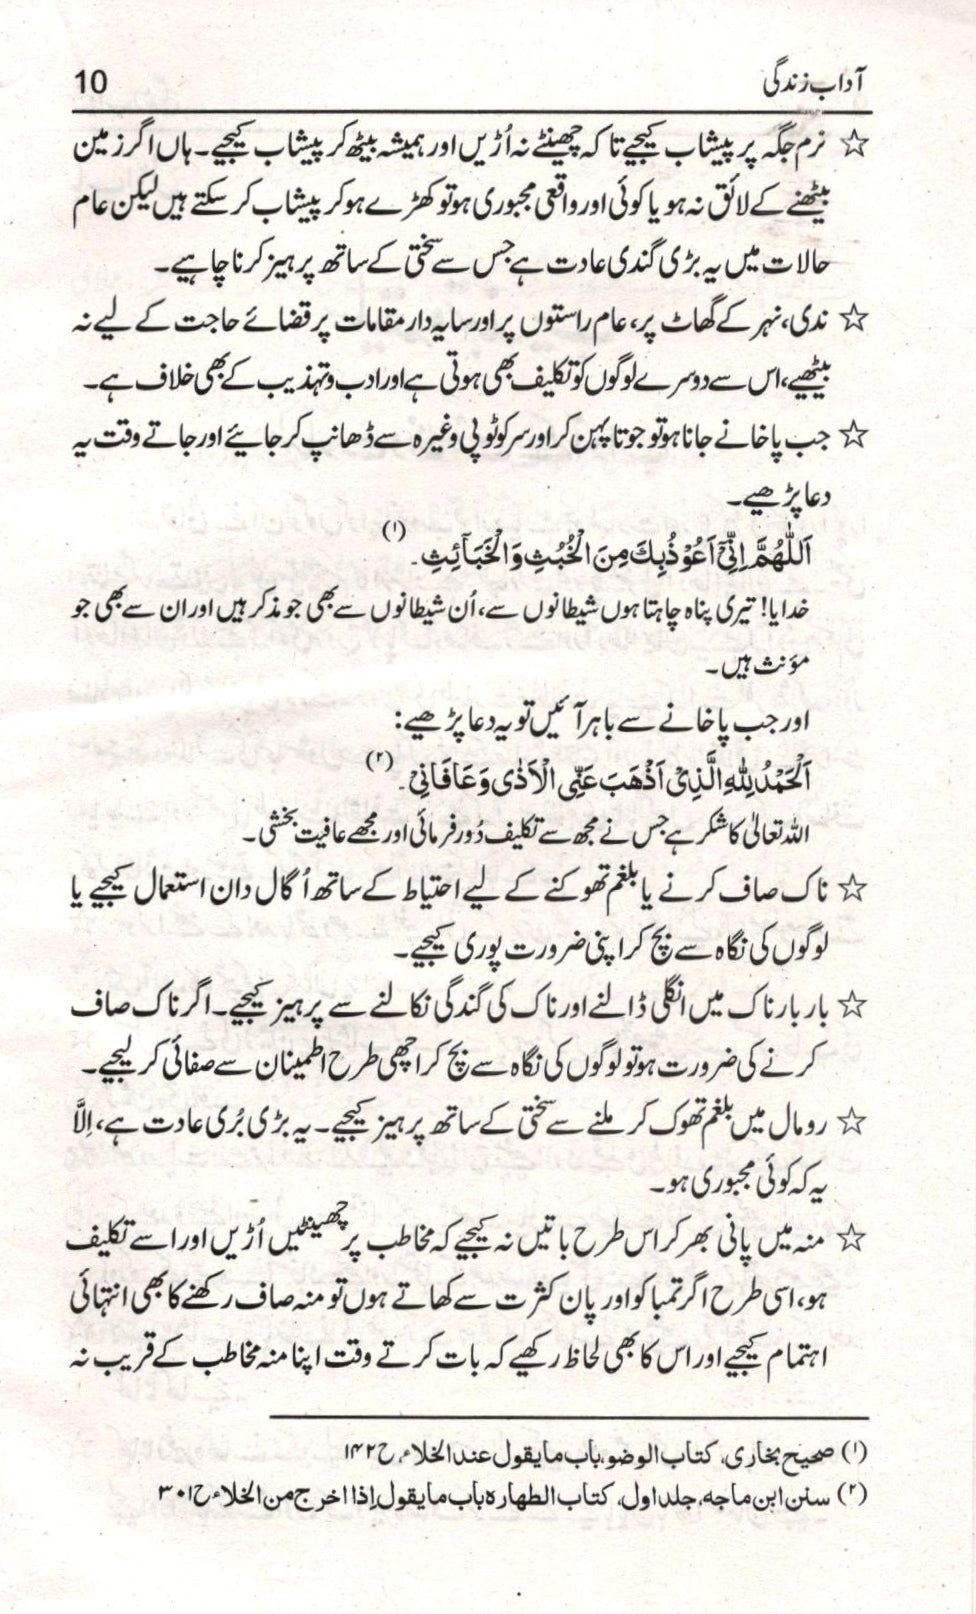 آداب زندگی
10
☆ نرم جگہ پر پیشاب کیجیے تاکہ چھینٹے نہ اُڑیں اور ہمیشہ بیٹھ کر پیشاب کیجیے۔ ہاں اگر زمین
بیٹھنے کے لائق نہ ہو یا کوئی اور واقعی مجبوری ہو تو کھڑے ہو کر پیشاب کر سکتے ہیں لیکن عام
حالات میں یہ بڑی گندی عادت ہے جس سے سختی کے ساتھ پرہیز کرنا چاہیے۔
☆ ندی، نہر کے گھاٹ پر، عام راستوں پر اور سایہ دار مقامات پر قضائے حاجت کے لیے نہ
بیٹھیے، اس سے دوسرے لوگوں کو تکلیف بھی ہوتی ہے اور ادب و تہذیب کے بھی خلاف ہے۔
☆ جب پاخانے جانا ہو تو جوتا پہن کر اور سر کو ٹوپی وغیرہ سے ڈھانپ کر جائیے اور جاتے وقت یہ
دعا پڑھیے۔
اَللّٰهُمَّ اِنِّیْٓ اَعُوْذُبِكَ مِنَ الْخُبُثِ وَالْخَبَآئِثِ۔ (۱)
خدایا! تیری پناہ چاہتا ہوں شیطانوں سے، اُن شیطانوں سے بھی جو مذکر ہیں اور ان سے بھی جو
مؤنث ہیں۔
اور جب پاخانے سے باہر آئیں تو یہ دعا پڑھیے:
اَلْحَمْدُلِلّٰهِ الَّذِیْ اَذْهَبَ عَنِّی الْاَذٰی وَعَافَانِیْ۔ (۲)
اللہ تعالیٰ کا شکر ہے جس نے مجھ سے تکلیف دُور فرمائی اور مجھے عافیت بخشی۔
☆ ناک صاف کرنے یا بلغم تھوکنے کے لیے احتیاط کے ساتھ اُگال دان استعمال کیجیے یا
لوگوں کی نگاہ سے بچ کر اپنی ضرورت پوری کیجیے۔
☆ بار بار ناک میں انگلی ڈالنے اور ناک کی گندگی نکالنے سے پرہیز کیجیے۔ اگر ناک صاف
کرنے کی ضرورت ہو تو لوگوں کی نگاہ سے بچ کر اچھی طرح اطمینان سے صفائی کر لیجیے۔
☆ رومال میں بلغم تھوک کر ملنے سے سختی کے ساتھ پرہیز کیجیے۔ یہ بڑی بُری عادت ہے، اِلَّا
یہ کہ کوئی مجبوری ہو۔
☆ منہ میں پانی بھر کر اس طرح باتیں نہ کیجیے کہ مخاطب پر چھینٹیں اُڑیں اور اسے تکلیف
ہو، اسی طرح اگر تمباکو اور پان کثرت سے کھاتے ہوں تو منہ صاف رکھنے کا بھی انتہائی
اہتمام کیجیے اور اس کا بھی لحاظ رکھیے کہ بات کرتے وقت اپنا منہ مخاطب کے قریب نہ
(۱) صحیح بخاری، کتاب الوضو،باب مایقول عندالخلاء، ح ۱۴۲
(۲) سنن ابن ماجه، جلداول، کتاب الطهاره باب مایقول إذا اخرج من الخلاء ح ۳۰۱